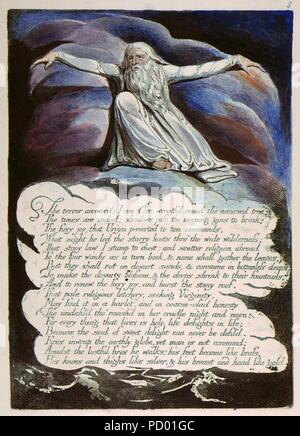 The terror answerd: I am Orc, wreath'd round the accursed tree:
The times are ended; shadows pass the morning gins to break;
The fiery joy, that Urizen perverted to ten commands,
What night he led the starry hosts thro' the wide wilderness:
That stony law I stamp to dust: and scatter religion abroad
To the four winds as a torn book, & none shall gather the leaves;
But they shall rot on desart sands, & consume in bottomless deeps;
To make the desarts blossom, & the deeps shrink to their fountains,
And to renew the fiery joy, and burst the stony roof.
That pale religious letchery, seeking Virginity,
May find it in a harlot, and in coarse-clad honesty
The undefil'd tho' ravish'd in her cradle night and morn:
For every thing that lives is holy, life delights in life;
Because the soul of sweet delight can never be defil'd.
Fires inwrap the earthly globe, yet man is not consumd;
Amidst the lustful fires he walks: his feet become like brass,
His knees and thighs like silver, & his breast and head like gold.
alamy
PD01GC